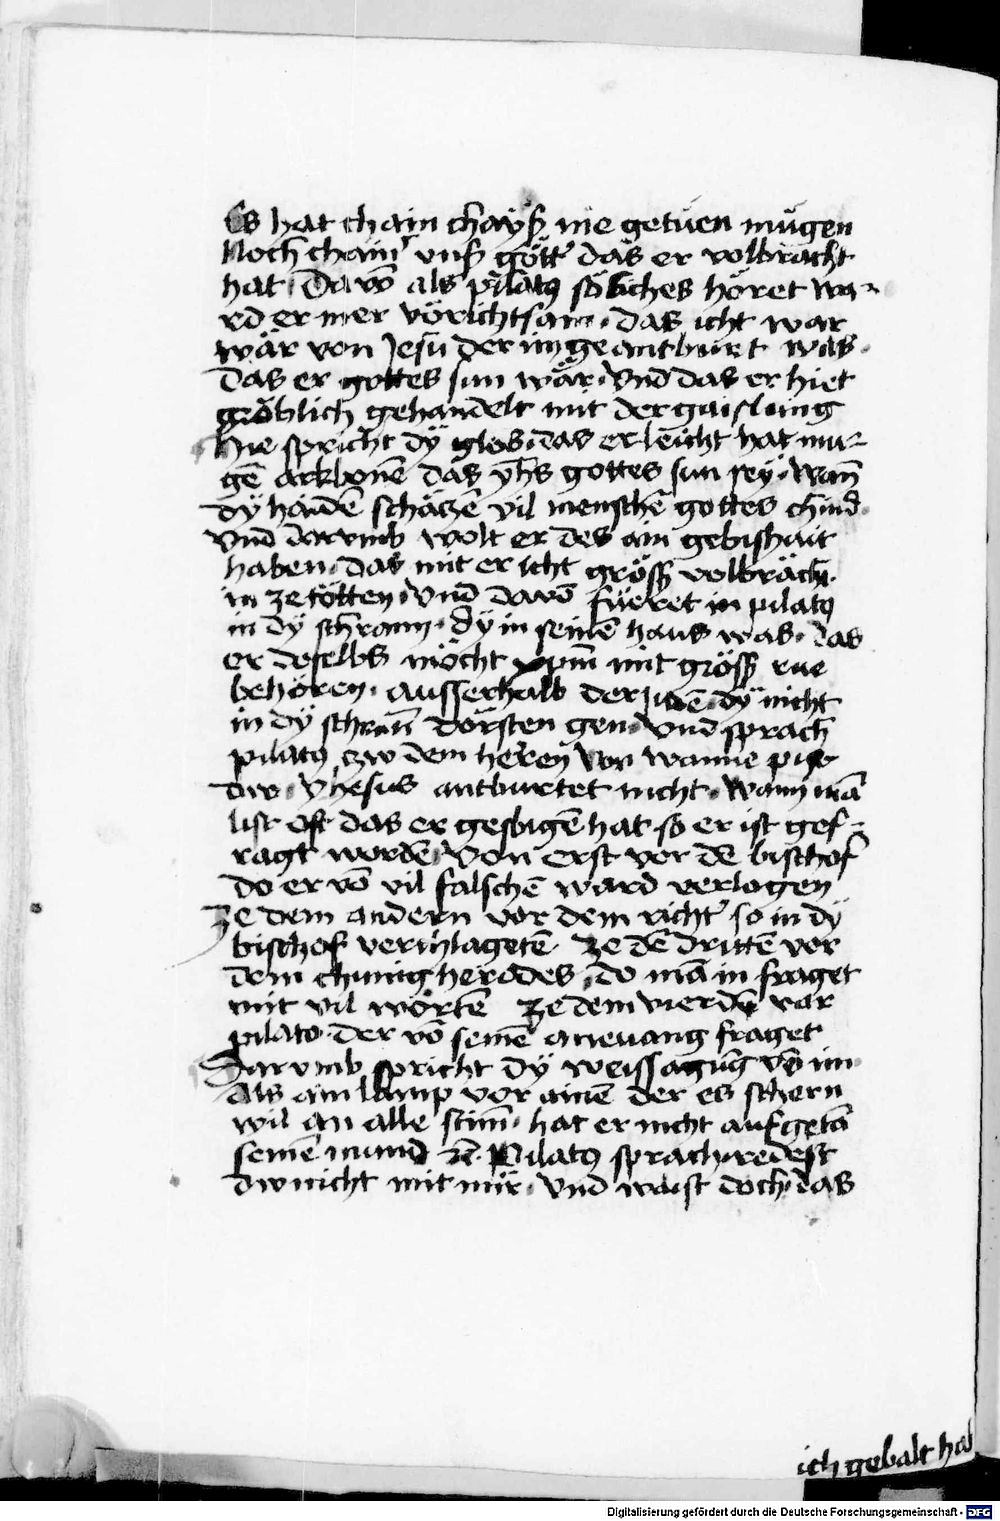 Es hat chain chaÿsß nie getuen mugen
Noch chainˀ vnsß göttˀ das er volbracht
hat · Davō als pilatꝯ söliches höret wa-
rd er mer vörichtsam · das icht war
wär von Jesu der im geantburt was ·
das er gottes sun wär · vnd das er hiet
gröblich gehandelt mit der gaislung
hie spricht dÿ glos · das er leicht hat mu-
gē arkhenē das yhs gottes sun seÿ · wan̄
dÿ haidē schätzē vil menschē gottes chind ·
vnd darvmb wolt er des ain gebishait
haben · das mit er icht grössß volbräch ·
in ze tötten · vnd davō füeret in pilatꝯ
in dÿ schrann · dÿ in seinē haus was · das
er doselbs möcht xpm̄ mit grössß rue
behören · ausserhalb der judē · dÿ nicht
in dÿ schran̄ dörsten gen · vnd sprach
pilatꝯ zw dem heren von wanne pist
dw · yhesus antburtet nicht · wann mā
list oft das er gesbigē hat so er ist gef-
ragt wordē · von erst vor dē bischof
do er vō vil falschē ward verlogen
ze dem andern vor dem richtˀ so in dÿ
bischof verchlagetē ze dē drittē vor
dem chunig herodes · do mā in fraget
mit vil wörtē ze dem vierdē var
pilato · der vō seinē anevang fraget
darvmb spricht dÿ weissagūg vō im ·
Als ain lamp vor ainē der es schern
wil an alle stim̄ · hat er nicht aufgetā
seinē mund ꝛc̄ · Pilatꝯ sprach · redest
dw nicht mit mir · vnd waist doch · das
ich gebalt hab
Digitalisierung gefördert durch die Deutsche Forschungsgemeinschaft - DFG